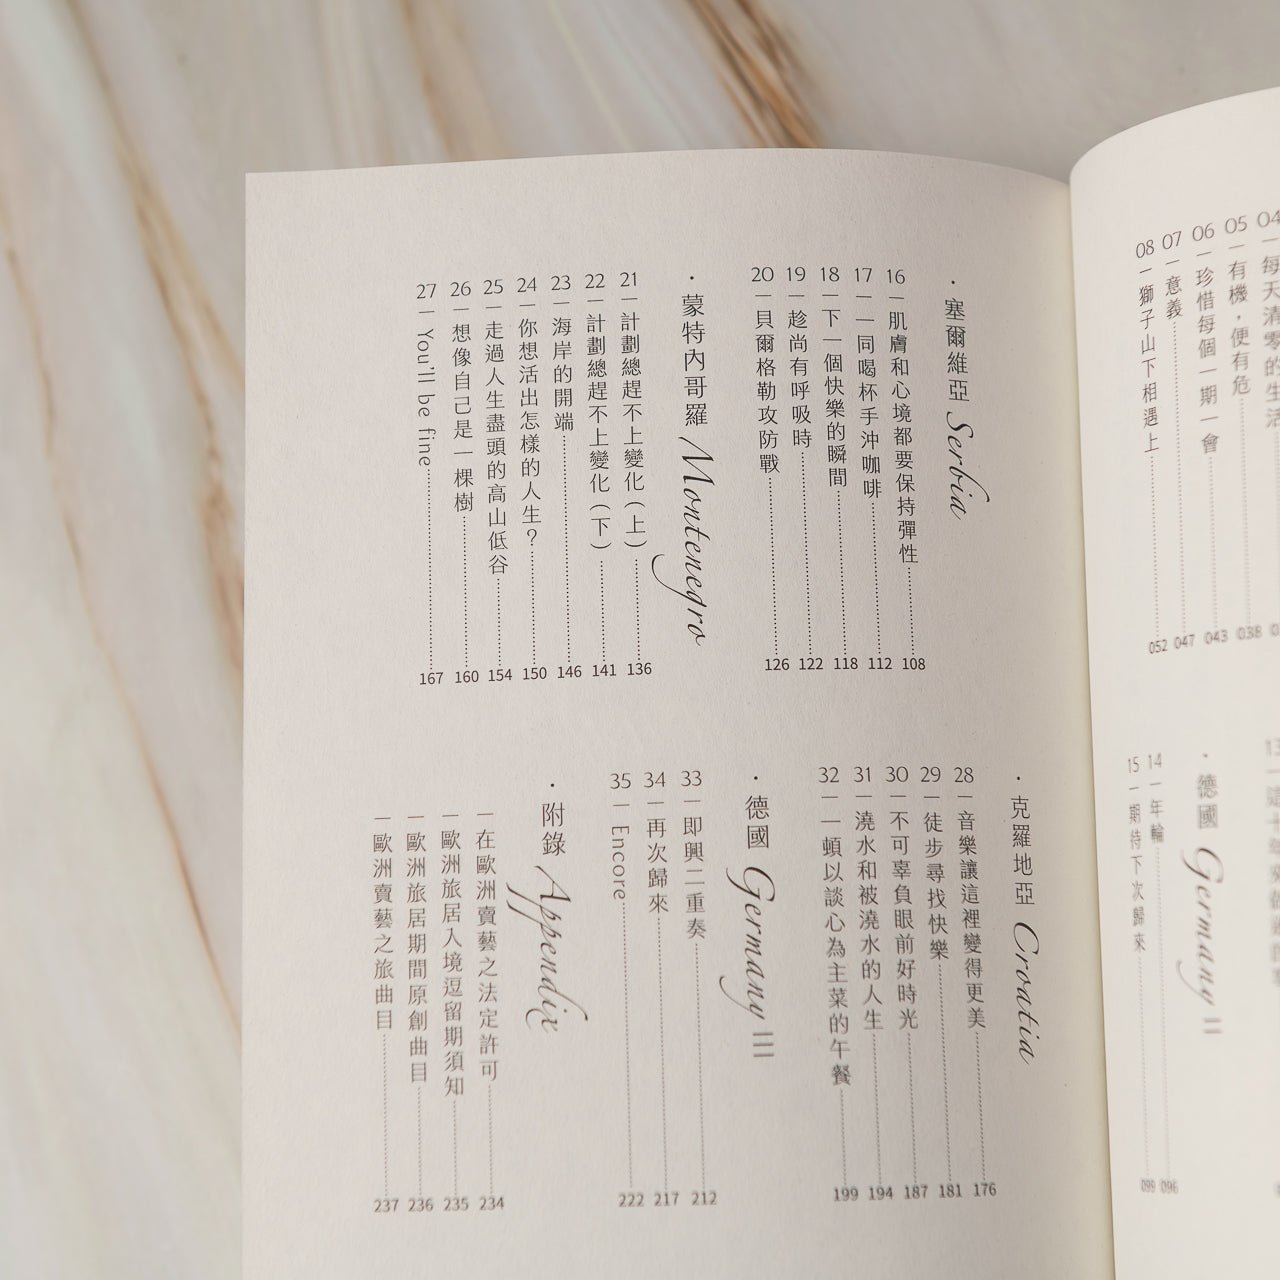 04｜每天清零的生活
05｜有機，便有危⋯⋯038
06｜珍惜每個一期一會⋯⋯043
07｜意義⋯⋯047
08｜獅子山下相遇上⋯⋯052
・德國 Germany II
14｜年輪⋯⋯096
15｜期待下次歸來⋯⋯099
・塞爾維亞 Serbia
16｜肌膚和心境都要保持彈性⋯⋯108
17｜一同喝杯手沖咖啡⋯⋯112
18｜下一個快樂的瞬間⋯⋯118
19｜趁尚有呼吸時⋯⋯122
20｜貝爾格勒攻防戰⋯⋯126
・蒙特內哥羅 Montenegro
21｜計劃總趕不上變化（上）⋯⋯136
22｜計劃總趕不上變化（下）⋯⋯141
23｜海岸的開端⋯⋯146
24｜你想活出怎樣的人生？⋯⋯150
25｜走過人生盡頭的高山低谷⋯⋯154
26｜想像自己是一棵樹⋯⋯160
27｜You'll be fine⋯⋯167
・克羅地亞 Croatia
28｜音樂讓這裡變得更美⋯⋯176
29｜徒步尋找快樂⋯⋯181
30｜不可辜負眼前好時光⋯⋯187
31｜澆水和被澆水的人生⋯⋯194
32｜一頓以談心為主菜的午餐⋯⋯199
・德國 Germany III
33｜即興二重奏⋯⋯212
34｜再次歸來⋯⋯217
35｜Encore⋯⋯222
・附錄 Appendix
｜在歐洲賣藝之法定許可⋯⋯234
｜歐洲旅居入境逗留期須知⋯⋯235
｜歐洲旅居期間原創曲目⋯⋯236
｜歐洲賣藝之旅曲目⋯⋯237